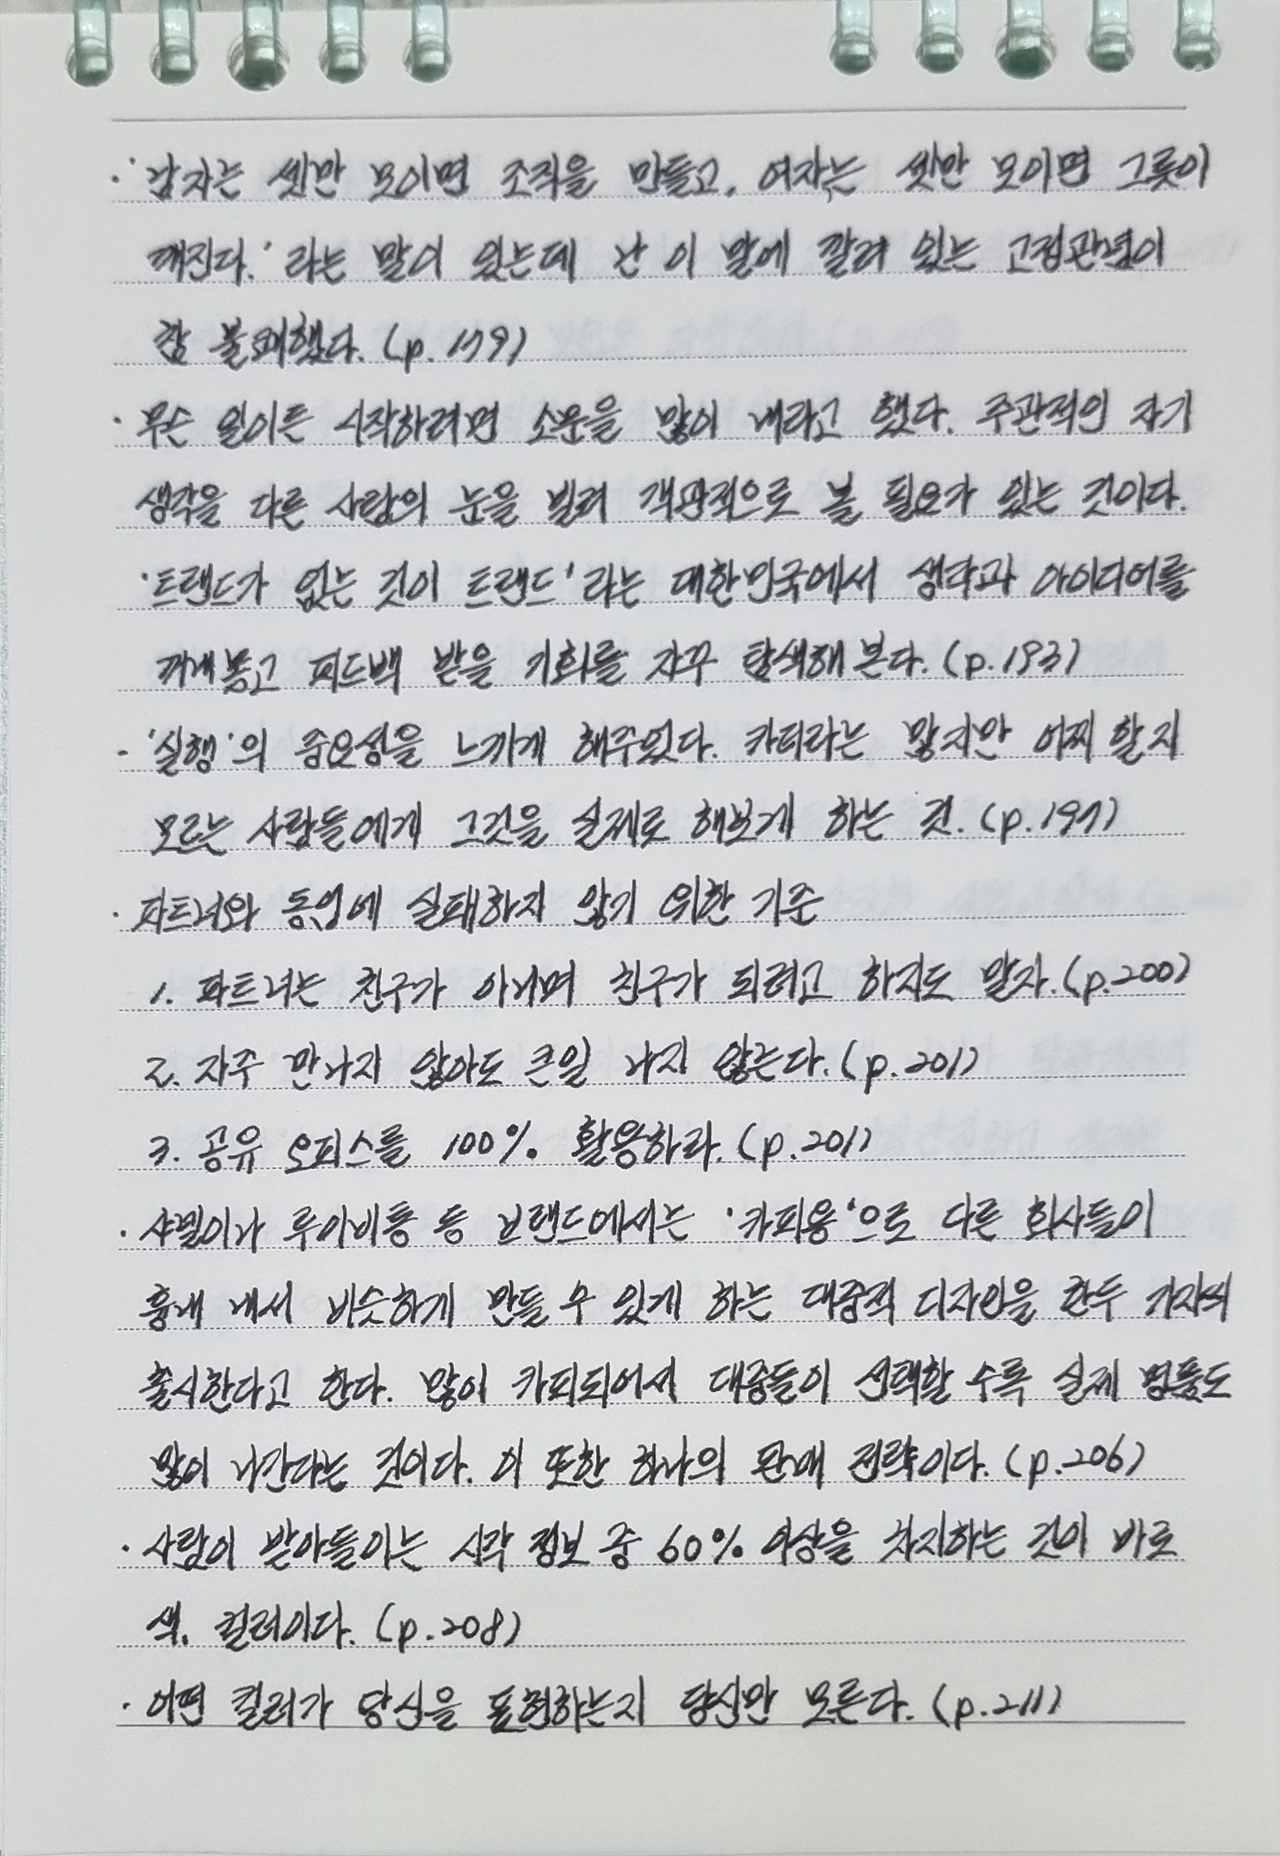 · '남자는 셋만 모이면 조직을 만들고, 여자는 셋만 모이면 그릇이
깨진다.' 라는 말이 있는데 난 이 말에 깔려 있는 고정관념이
참 불쾌했다. (p.179)
· 무슨 일이든 시작하려면 소문을 많이 내라고 했다. 주관적인 자기
생각을 다른 사람의 눈을 빌려 객관적으로 볼 필요가 있는 것이다.
'트랜드가 없는 것이 트랜드' 라는 대한민국에서 생각과 아이디어를
꺼내놓고 피드백 받을 기회를 자꾸 탐색해 본다. (p.193)
- '실행'의 중요성을 느끼게 해주었다. 카더라는 많지만 어찌 할지
모르는 사람들에게 그것을 실제로 해보게 하는 것. (p.197)
· 파트너와 동업에 실패하지 않기 위한 기준
1. 파트너는 친구가 아니며 친구가 되려고 하지도 말자. (p.200)
2. 자주 만나지 않아도 큰일 나지 않는다. (p.201)
3. 공유 오피스를 100% 활용하라. (p.201)
· 샤넬이나 루이비통 등 브랜드에서는 '카피용'으로 다른 회사들이
흉내 내서 비슷하게 만들 수 있게 하는 대중적 디자인을 한두 가지씩
출시한다고 한다. 많이 카피되어서 대중들이 선택할 수록 실제 명품도
많이 나간다는 것이다. 이 또한 하나의 판매 전략이다. (p.206)
· 사람이 받아들이는 시각 정보 중 60% 이상을 차지하는 것이 바로
색, 컬러이다. (p.208)
· 어떤 컬러가 당신을 표현하는지 당신만 모른다. (p.211)